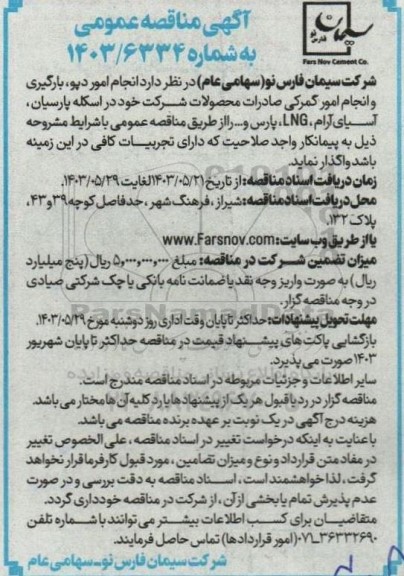 آگهی مناقصه عمومی
به شماره ۱۴۰۳/۶۳۳۴
سیمان
فارس نو
Fars Nov Cement Co.
شرکت سیمان فارس نو(سهامی عام) در نظر دارد انجام امور دپو، بارگیری
و انجام امور گمرکی صادرات محصولات شرکت خود در اسکله پارسیان ،
آسیای آرام ، LNG، پارس و... را از طریق مناقصه عمومی با شرایط مشروحه
ذیل به پیمانکار واجد صلاحیت که دارای تجربیات کافی در این زمینه
باشد واگذار نماید.
زمان دریافت اسناد مناقصه: از تاریخ ۱۴۰۳/۰۵/۲۱ لغایت ۱۴۰۳/۰۵/۲۹.
محل دریافت اسناد مناقصه: شیراز ، فرهنگ شهر ، حدفاصل کوچه ۳۹ و ۴۳،
پلاک ۱۳۲.
یا از طریق وب سایت: www.Farsnov.com
میزان تضمین شرکت در مناقصه: مبلغ ۵,۰۰۰,۰۰۰,۰۰۰ ریال (پنج میلیارد
ریال) به صورت واریز وجه نقد یا ضمانت نامه بانکی یا چک شرکتی صیادی
در وجه مناقصه گزار.
مهلت تحویل پیشنهادات: حداکثر تا پایان وقت اداری روز دوشنبه مورخ ۱۴۰۳/۰۵/۲۹.
بازگشایی پاکت های پیشنهاد قیمت در مناقصه حداکثر تا پایان شهریور
۱۴۰۳ صورت می پذیرد.
سایر اطلاعات و جزئیات مربوطه در اسناد مناقصه مندرج است.
مناقصه گزار در رد یا قبول هر یک از پیشنهادها یا رد کلیه آن ها مختار می باشد.
هزینه درج آگهی در یک نوبت بر عهده برنده مناقصه می باشد.
با عنایت به اینکه درخواست تغییر در اسناد مناقصه ، علی الخصوص تغییر
در مفاد متن قرارداد و نوع و میزان تضامین ، مورد قبول کارفرما قرار نخواهد
گرفت ، لذا خواهشمند است ، اسناد مناقصه به دقت بررسی و در صورت
عدم پذیرش تمام یا بخشی از آن ، از شرکت در مناقصه خودداری گردد.
متقاضیان برای کسب اطلاعات بیشتر می توانند با شماره تلفن
۰۷۱-۳۶۳۳۲۶۹۰ (امور قراردادها) تماس حاصل فرمایند.
شرکت سیمان فارس نو-سهامی عام